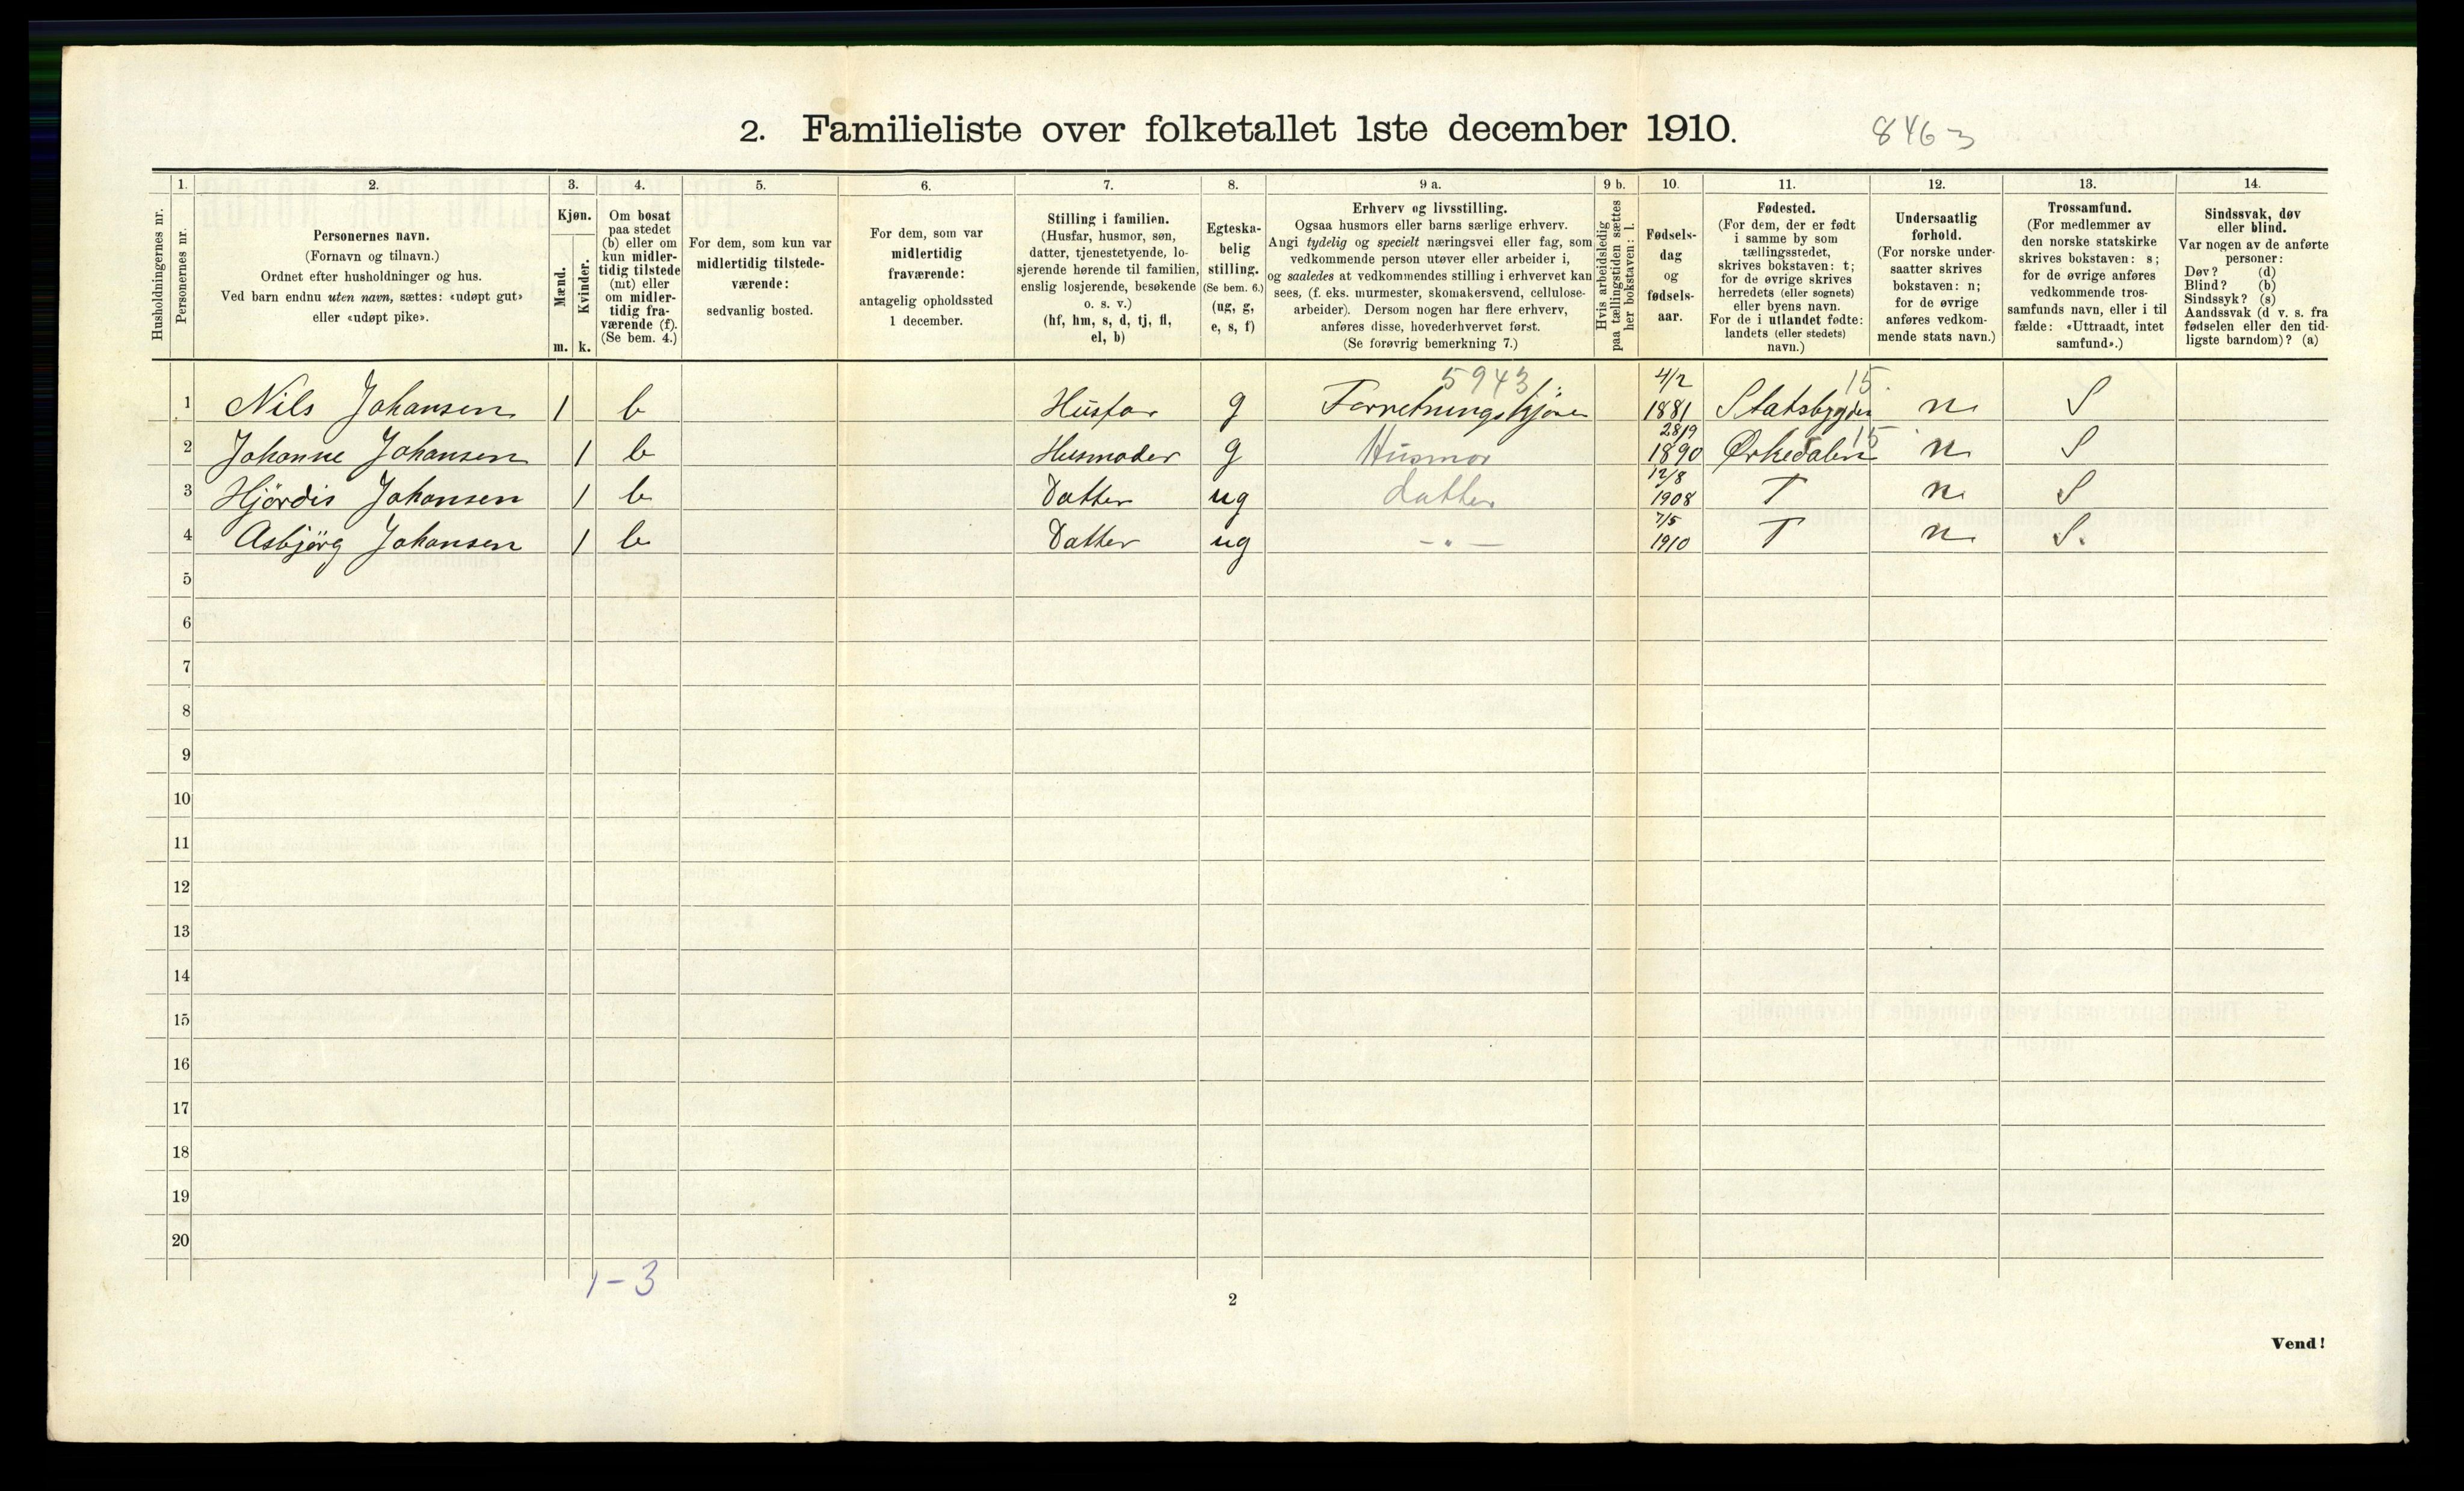 2. Familieliste over folketallet 1ste december 1910.
8463
Husholdningernes nr.
1.
Personernes nr.
2.
Personernes navn.
(Fornavn og tilnavn.)
Ordnet efter husholdninger og hus.
Ved barn endnu uten navn, sættes: «udøpt gut»
eller «udøpt pike».
3.
Kjøn.
Mænd.
Kvinder.
m. k.
4.
Om bosat
paa stedet
(b) eller om
kun midler-
tidig tilstede
(mt) eller
om midler-
tidig fra-
værende (f).
(Se bem. 4.)
5.
For dem, som kun var
midlertidig tilstede-
værende:
sedvanlig bosted.
6.
For dem, som var
midlertidig
fraværende:
antagelig opholdssted
1 december.
7.
Stilling i familien.
(Husfar, husmor, søn,
datter, tjenestetyende, lo-
sjerende hørende til familien,
enslig losjerende, besøkende
o. s. v.)
(hf, hm, s, d, tj, fl,
el, b)
8.
Egteska-
belig
stilling.
(Se bem. 6.)
(ug, g,
e, s, f)
9 a.
Erhverv og livsstilling.
Ogsaa husmors eller barns særlige erhverv.
Angi tydelig og specielt næringsvei eller fag, som
vedkommende person utøver eller arbeider i,
og saaledes at vedkommendes stilling i erhvervet kan
sees, (f. eks. murmester, skomakersvend, cellulose-
arbeider). Dersom nogen har flere erhverv,
anføres disse, hovederhvervet først.
(Se forøvrig bemerkning 7.)
9 b.
Hvis arbeidsledig
paa tællingstiden sættes
her bokstaven: l.
10.
Fødsels-
dag
og
fødsels-
aar.
11.
Fødested.
(For dem, der er født
i samme by som
tællingsstedet,
skrives bokstaven: t;
for de øvrige skrives
herredets (eller sognets)
eller byens navn.
For de i utlandet fødte:
landets (eller stedets)
navn.)
12.
Undersaatlig
forhold.
(For norske under-
saatter skrives
bokstaven: n;
for de øvrige
anføres vedkom-
mende stats navn.)
13.
Trossamfund.
(For medlemmer av
den norske statskirke
skrives bokstaven: s;
for de øvrige anføres
vedkommende tros-
samfunds navn, eller i til
fælde: «Uttraadt, intet
samfund».)
14.
Sindssvak, døv
eller blind.
Var nogen av de anførte
personer:
Døv? (d)
Blind? (b)
Sindssyk? (s)
Aandssvak (d v. s. fra
fødselen eller den tid-
ligste barndom)? (a)
5943 4/2 15.
1 Nils Johansen 1 b Husfar g 1881 Statsbygden n S
28/9 15
2 Johanne Johansen 1 b Husmoder g Husmor 1890 Ørkedalen n S
12/8
3 Hjördis Johansen 1 b Datter ug datter 1908 T n S
7/5
4 Asbjörg Johansen 1 b Datter ug - " - 1910 T n S.
5
6
7
8
9
10
11
12
13
14
15
16
17
18
19
20
1-3
2
Vend!